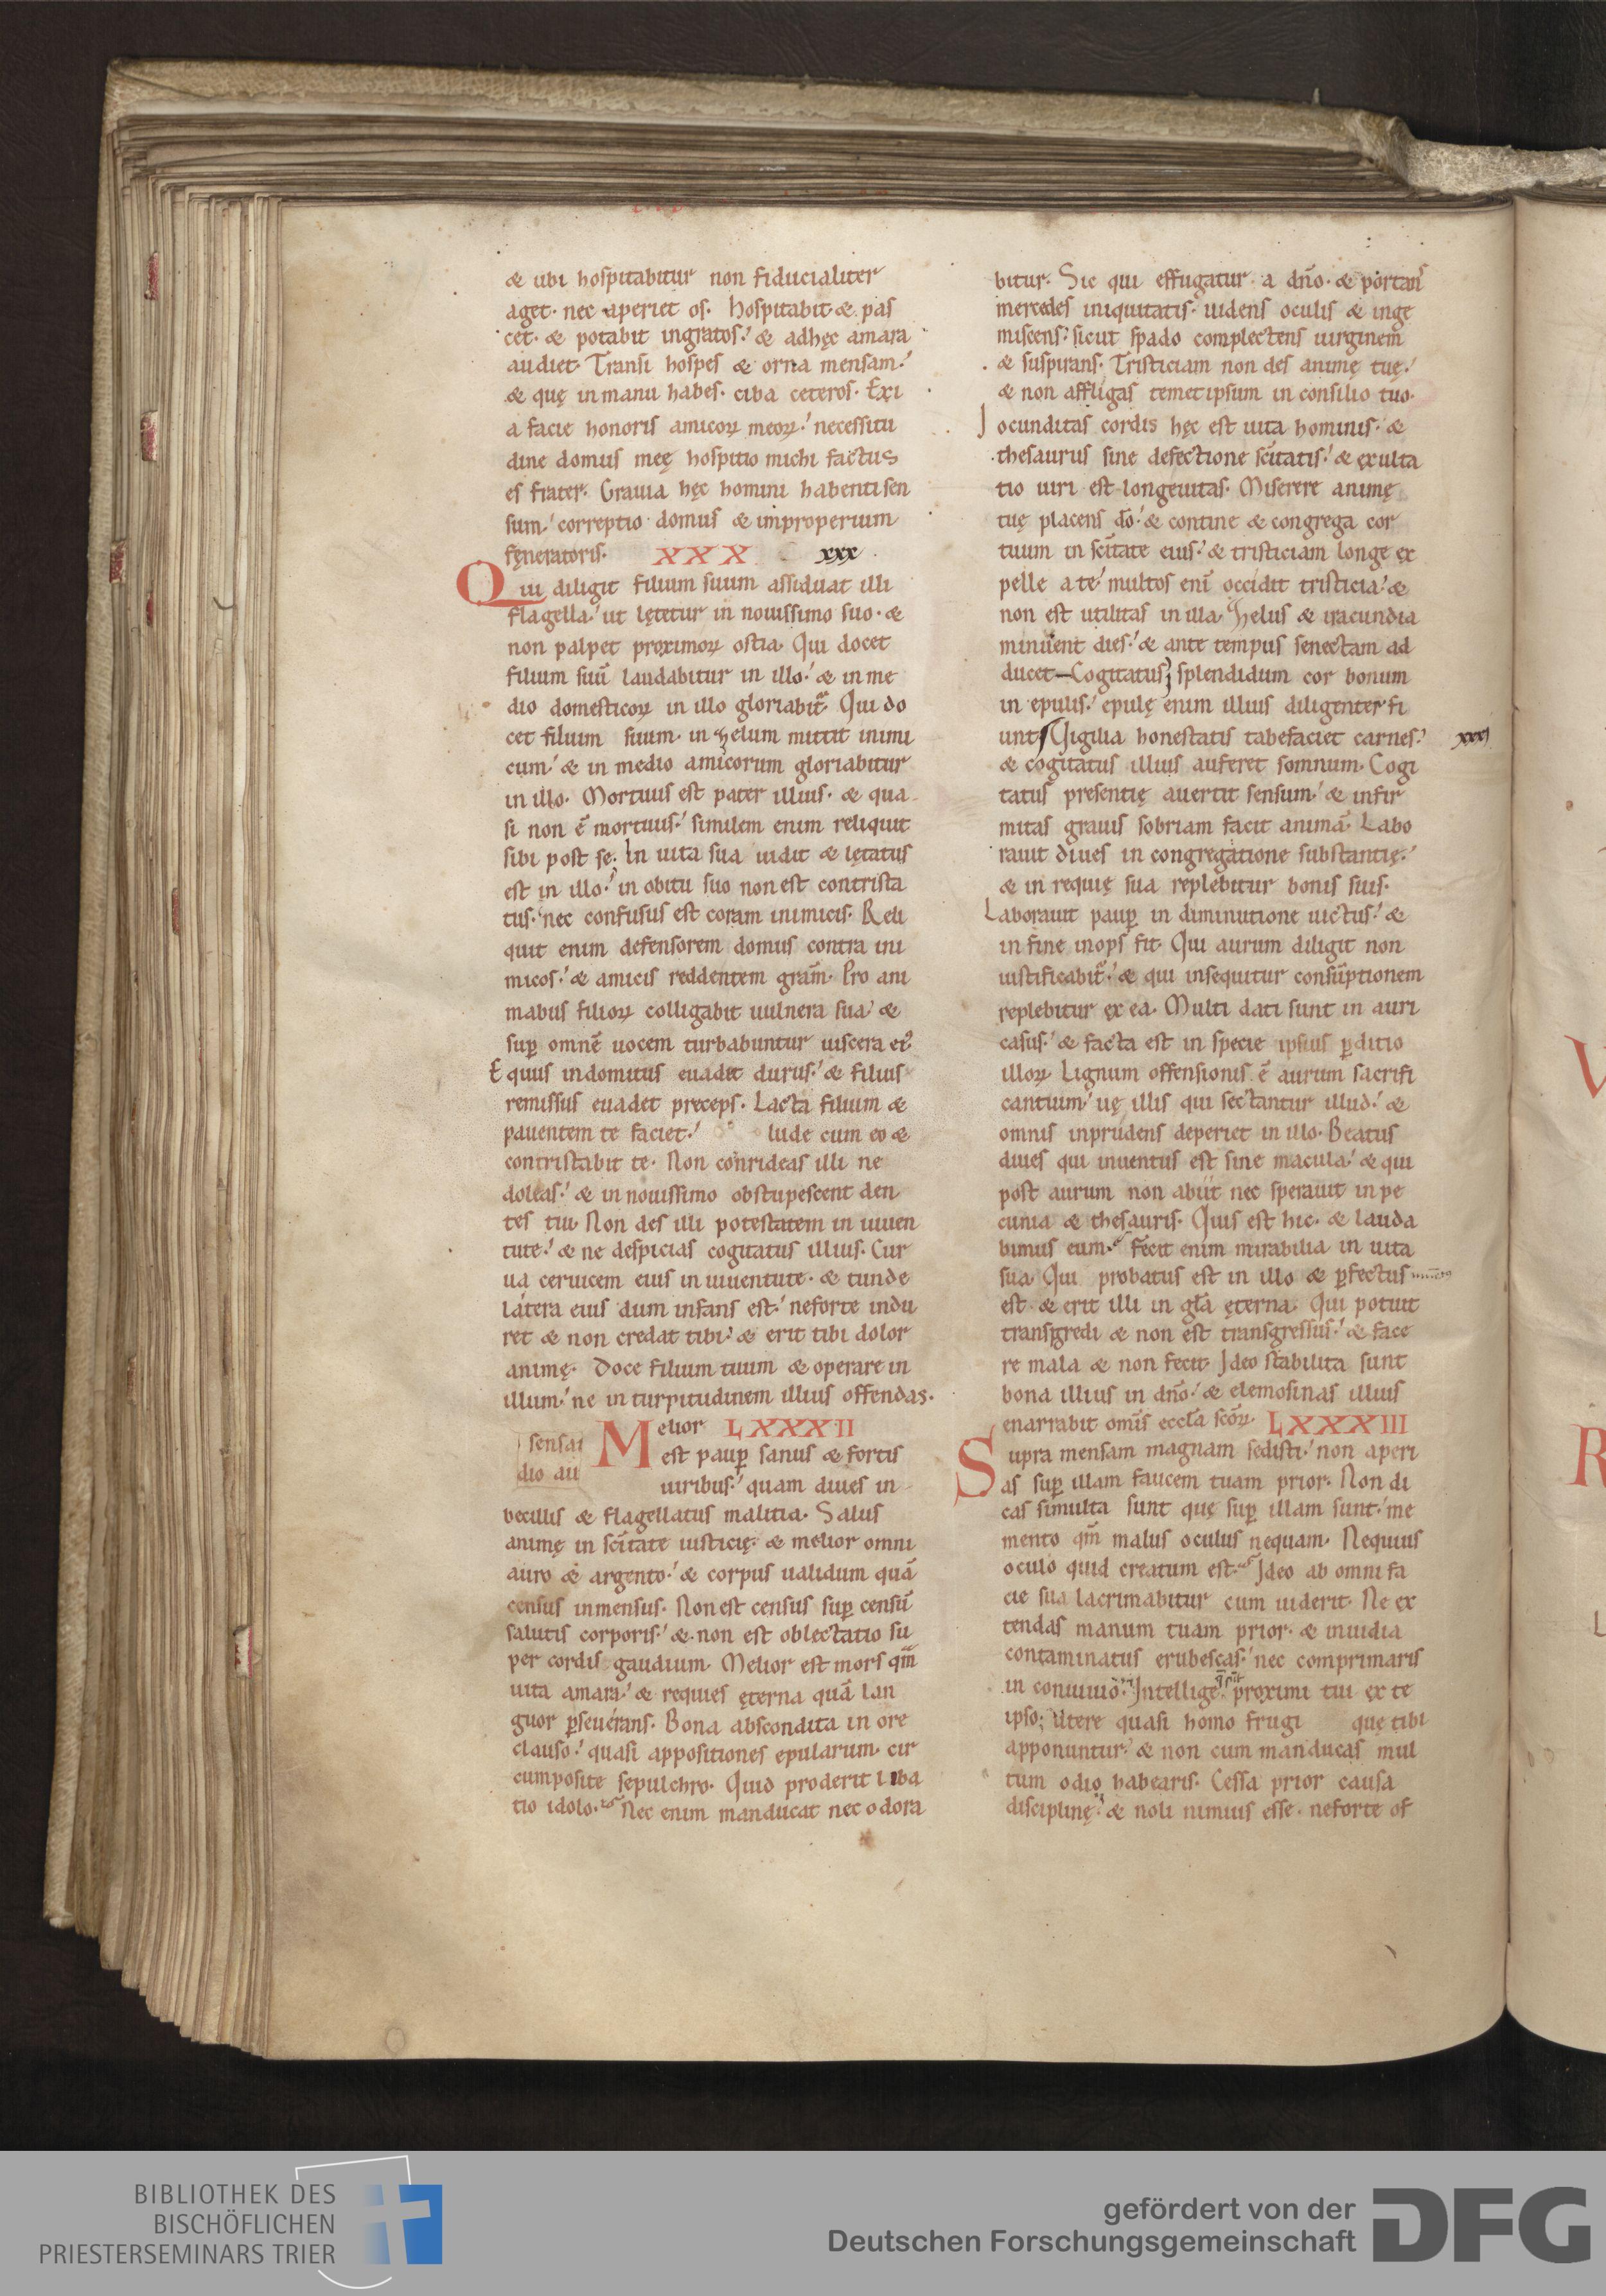 & ubi hospitabitur non fiducialiter
aget· nec aperiet os. Hospitabit & pas
cet· & potabit ingratos:' & adhęc amara
audiet· Transi hospes & orna mensam:'
& quę in manu habes· ciba ceteros. Exi
a facie honoris amicoꝝ meoꝝ:' necessitu
dine domus meę hospitio michi factus
es frater· Grauia hęc homini habenti sen
sum:' correptio domus & improperium
fęneratoris· XXX xxx
Qui diligit filium suum assiduat illi
flagella:' ut lętetur in nouissimo suo· &
non palpet proximoꝝ ostia· Qui docet
filium suū laudabitur in illo:' & in me
dio domesticoꝝ in illo gloriabit᷑· Qui do
cet filium suum· in zelum mittit inimi
cum:' & in medio amicorum gloriabitur
in illo· Mortuus est pater illius· & qua
si non ē mortuus:' similem enim reliquit
sibi post se· In uita sua uidit & lętatus
est in illo:' in obitu suo non est contrista
tus· nec confusus est coram inimicis· Reli
quit enim defensorem domus contra ini
micos:' & amicis reddentem gram̄· Pro ani
mabus filioꝝ colligabit uulnera sua:' &
suꝑ omnē uocem turbabuntur uiscera ei᷒
Equus indomitus euadet durus:' & filius
remissus euadet preceps· Lacta filium &
pauentem te faciet:' lude cum eo &
contristabit te· Non conrideas illi ne
doleas:' & in nouissimo obstupescent den
tes tui· Non des illi potestatem in iuuen
tute:' & ne despicias cogitatus illius· Cur
ua ceruicem eius in iuuentute· & tunde
latera eius dum infans est:' neforte indu
ret & non credat tibi:' & erit tibi dolor
animę· Doce filium tuum & operare in
illum:' ne in turpitudinem illius offendas·
Melior LXXXII
est pauꝑ sanus & fortis
uiribus:' quam diues in
becillis & flagellatus malitia· Salus
animę in scītate iusticię· & melior omni
auro & argento:' & corpus ualidum quā
census inmensus· Non est census suꝑ censū
salutis corporis:' & non est oblectatio su
per cordis gaudium· Melior est mors qm̄
uita amara:' & requies ęterna quā lan
guor ꝑseuerans· Bona abscondita in ore
clauso:' quasi appositiones epularum cir
cumposite sepulchro· Quid proderit liba
tio idolo· Nec enim manducat nec odora
bitur· Sic qui effugatur a dn̄o· & portans
mercedes iniquitatis· uidens oculis & inge
miscens:' sicut spado complectens uirginem
& suspirans· Tristiciam non des animę tuę:'
& non affligas temetipsum in consilio tuo·
Iocunditas cordis hęc est uita hominis· &
thesaurus sine defectione scītatis:' & exulta
tio uiri est longeuitas· Miserere animę
tuę placens dō:' & contine & congrega cor
tuum in scītate eius:' & tristiciam longe ex
pelle a te:' multos enī occidit tristicia:' &
non est utilitas in illa· Zelus & iracundia
minuent dies:' & ante tempus senectam ad
ducet— Cogitatus; splendidum cor bonum
in epulis:' epulę enim illius diligenter fi
unt Uigilia honestatis tabefaciet carnes:' xxxj
& cogitatus illius auferet somnum· Cogi
tatus presentię auertit sensum:' & infir
mitas grauis sobriam facit animā· Labo
rauit diues in congregatione substantię:'
& in requię sua replebitur bonis suis·
Laborauit pauꝑ in diminutione uictus:' &
in fine inops fit· Qui aurum diligit non
iustificabit᷑:' & qui insequitur consūptionem
replebitur ex ea· Multi dati sunt in auri
casus:' & facta est in specie ipsius ꝑditio
illoꝝ Lignum offensionis ē aurum sacrifi
cantium:' uę illis qui sectantur illud:' &
omnis inprudens deperiet in illo· Beatus
diues qui inuentus est sine macula:' & qui
post aurum non abiit nec sperauit in pe
cunia & thesauris· Quis est hic· & lauda
bimus eum· Fecit enim mirabilia in uita
sua· Qui probatus est in illo & ꝑfectus
est· & erit illi in glā ęterna· Qui potuit
transgredi & non est transgressus:' & face
re mala & non fecit· Ideo stabilita sunt
bona illius in dn̄o:' & elemosinas illius
enarrabit omīs eccla scōꝝ· LXXXIII
Supra mensam magnam sedisti:' non aperi
as suꝑ illam faucem tuam prior· Non di
cas si multa sunt quę suꝑ illam sunt:' me
mento qm̄ malus oculus nequam· Nequius
oculo quid creatum est· Ideo ab omni fa
cie sua lacrimabitur cum uiderit· Ne ex
tendas manum tuam prior· & inuidia
contaminatus erubescas:' nec comprimaris
in conuiuio· Intellige proximi tui ex te
ipso; Utere quasi homo frugi quę tibi
apponuntur:' & non cum manducas mul
tum odio habearis· Cessa prior causa
disciplinę:' & noli nimius esse· neforte of
BIBLIOTHEK DES
BISCHÖFLICHEN
PRIESTERSEMINARS TRIER
gefördert von der
Deutschen Forschungsgemeinschaft
DFG